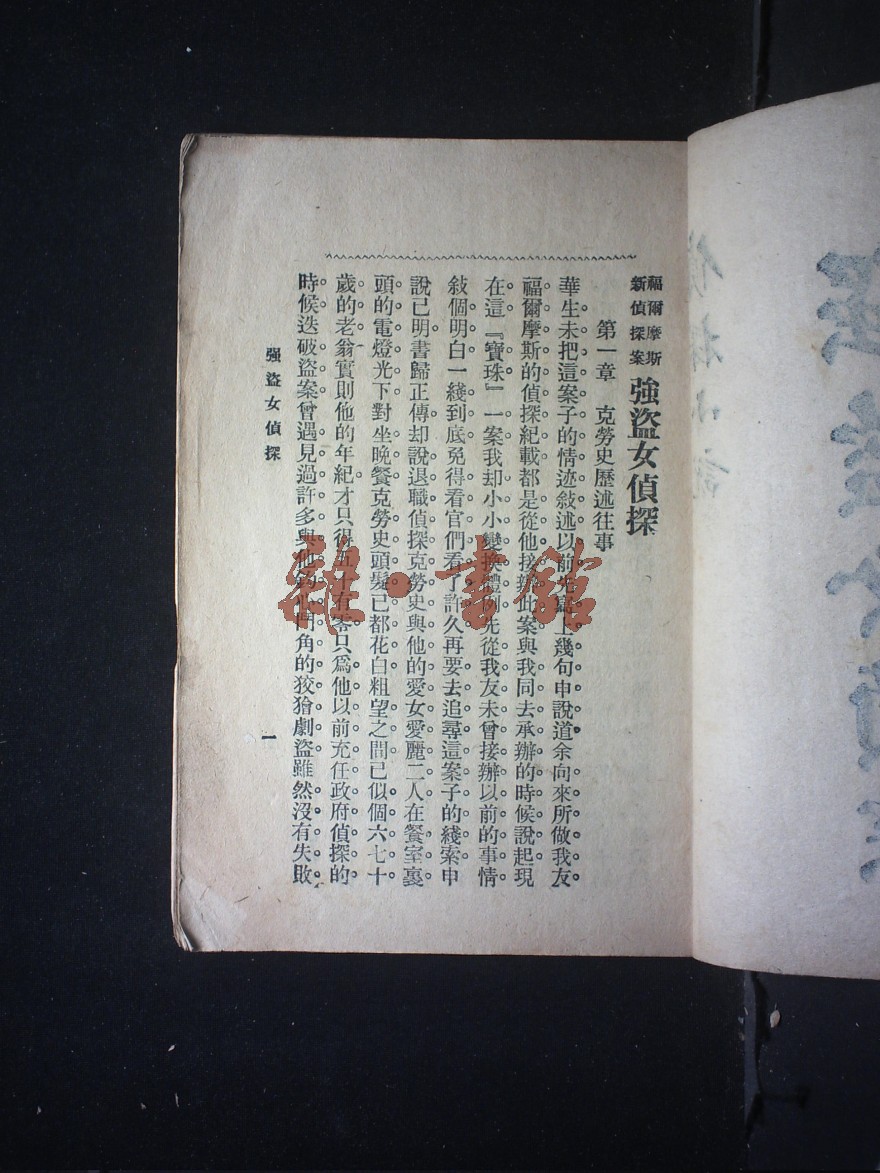 福爾摩斯
新偵探案
強盜女偵探
第一章 克勞史歷述往事
華生未把這案子的情迹敍述以前先寫上幾句申說道余向來所做我友
福爾摩斯的偵探紀載都是從他接辦此案與我同去承辦的時候說起現
在這『寶珠』一案我却小小變換體例先從我友未曾接辦以前的事情
敍個明白一綫到底免得看官們看了許久再要去追尋這案子的綫索申
說已明書歸正傳却說退職偵探克勞史與他的愛女愛麗二人在餐室裏
頭的電燈光下對坐晚餐克勞史頭髮已都花白粗望之間已似個六七十
歲的老翁實則他的年紀才只得五十有零只爲他以前充任政府偵探的
時候迭破盜案曾遇見過許多與他鈎心鬥角的狡獪劇盜雖然沒有失敗
強盜女偵探
一
雜·書館